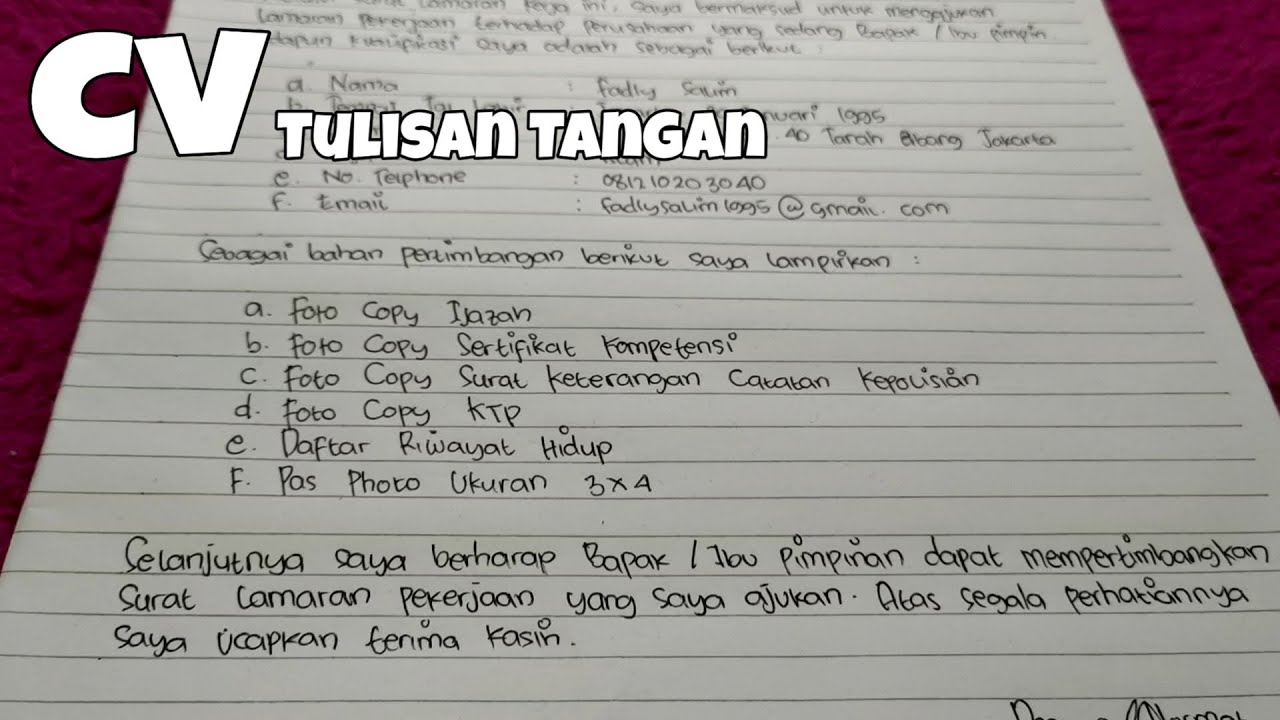 CV
TULISAN TANGAN
lamaran kerja ini, saya bermaksud untuk mengajukan
lamaran pekerjaan terhadap perusahaan yang sedang Bapak / Ibu pimpin.
kualifikasi saya adalah sebagai berikut :
a. Nama : Fadly Salim
b. 1995
40 Tanah Abang Jakarta
e. No. Telphone : 081210203040
f. Email : fadlysalim1995@gmail.com
Sebagai bahan pertimbangan berikut saya lampirkan :
a. Foto Copy Ijazah
b. Foto Copy Sertifikat Kompetensi
c. Foto Copy Surat Keterangan Catatan Kepolisian
d. Foto Copy KTP
e. Daftar Riwayat Hidup
F. Pas Photo Ukuran 3x4
Selanjutnya saya berharap Bapak / Ibu pimpinan dapat mempertimbangkan
Surat lamaran pekerjaan yang saya ajukan. Atas segala perhatiannya
saya ucapkan terima kasih.